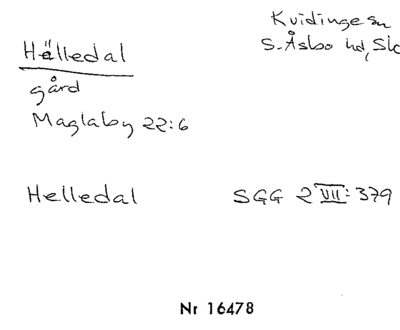 Kvidinge sn
S. Åsbo hd, Sk
Hälledal
gård
Maglaby 22:6
Helledal SGG 2 VII: 379
Nr 16478